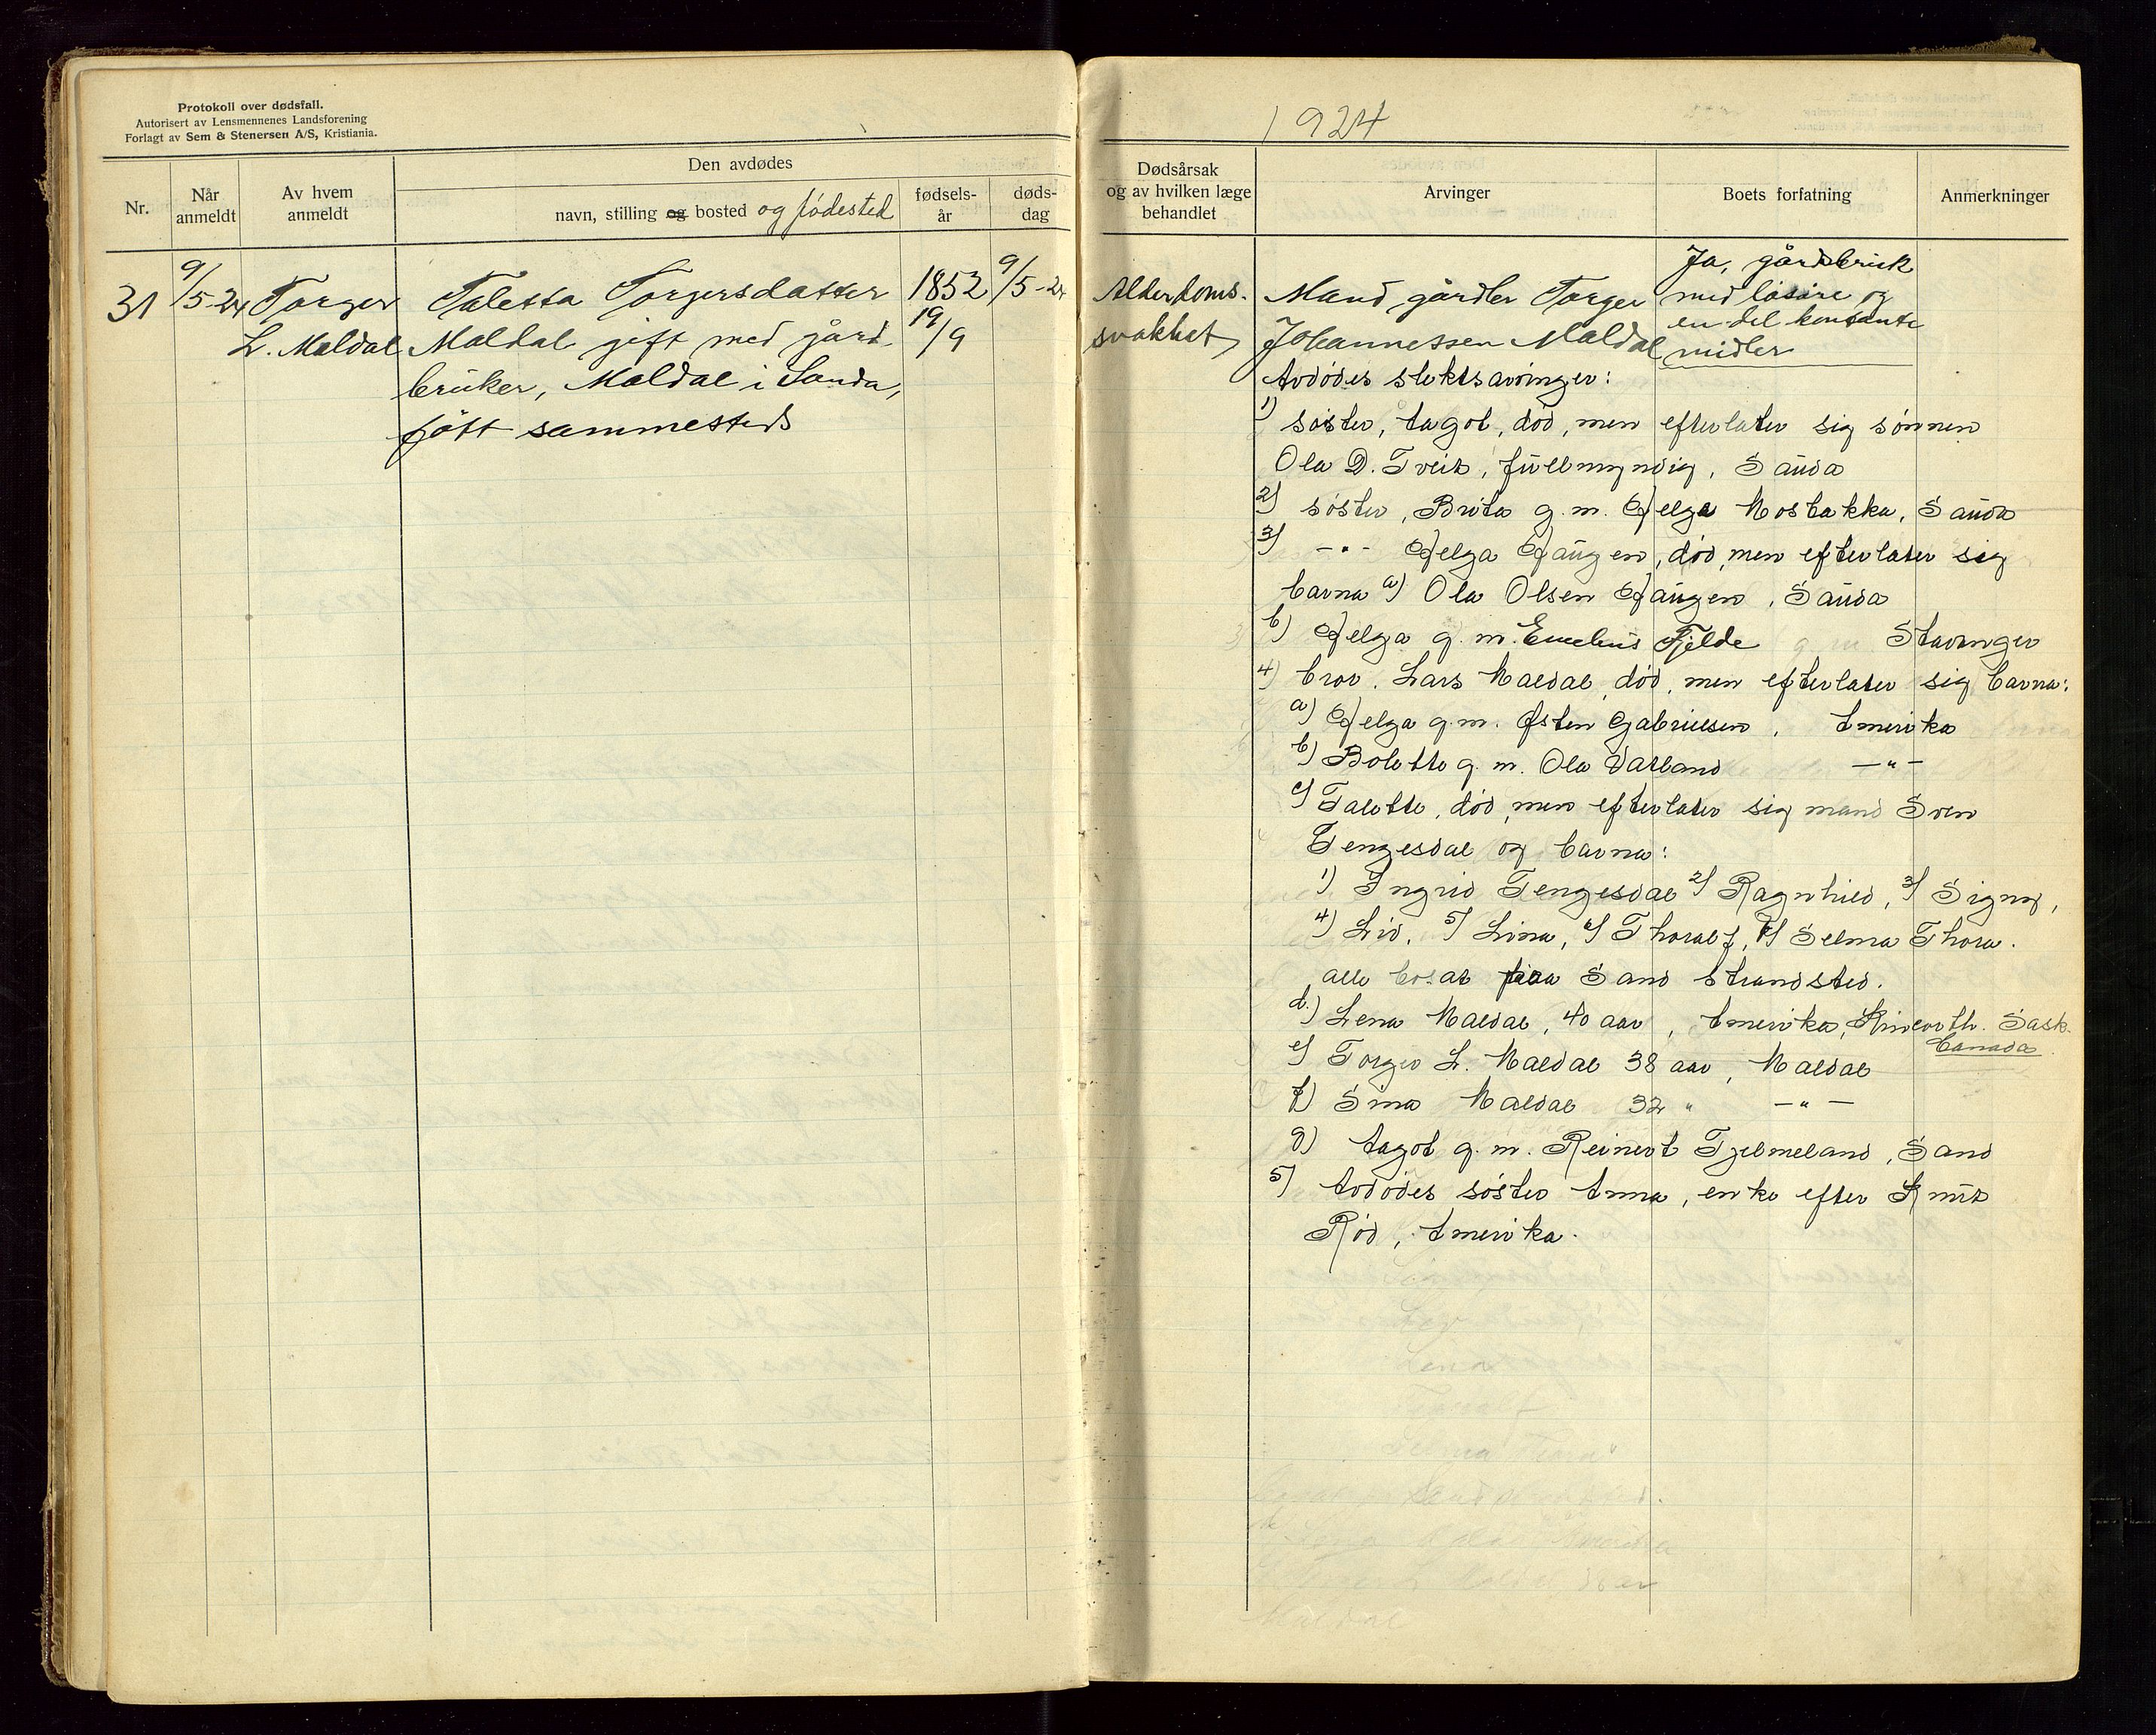 Protokoll over dødsfall.
Autorisert av Lensmennenes Landsforening
Forlagt av Sem & Stenersen A/S, Kristiania.
Nr.
Når anmeldt
Av hvem anmeldt
Den avdødes
navn, stilling og bosted og fødested
fødsels-år
døds-dag
31
9/5-24
Torger
L. Maldal
Taletta Torgersdatter
Maldal gift med gård
bruker, Maldal i Sauda,
født sammesteds
1852
19/9
9/5-24
1924
Dødsårsak
og av hvilken læge
behandlet
Arvinger
Boets forfatning
Anmerkninger
Alderdoms-
svakhet
Ja, gårdsbruk
med løsøre og
en del kontante
midler
Mand gårdbr Torger
Johannessen Maldal
Avdødes slektsarvinger:
1) søster, Aagot, død, men efterlater sig sønnen
Ola D. Tveit, fullmyndig, Sauda
2) søster, Brita g. m. Helge Mostakka, Sauda
3) -"- Helga Haugen, død, men efterlater sig
barna a) Ola Olsen Haugen, Sauda
b) Helga g. m. Fjelde Stavanger
4) bror. Lars Maldal, død, men efterlater sig barna:
a) Helga g. m. Østen Gabrielsen, Amerika
b) Bolette g. m. Ola Vatland -"-
c) Talette, død, men efterlater sig mand Sven
Tengesdal og barna:
1) Ingrid Tengesdal 2) Ragnhild, 3) Signy,
4) Liv, 5) Lina, 6) Thoralf, 7) Selma Thora.
alle bosat paa Sand Strandsted.
d.) Lena Maldal, 40 aar, Amerika, Sask.
Canada.
e) Torger L. Maldal 38 aar, Maldal
f) Sina Maldal 32 " -"-
g) Aagot g. m. Reinert Tjelmeland, Sand
5) Avdødes søster Anna, enke efter Knut
Rød, Amerika.